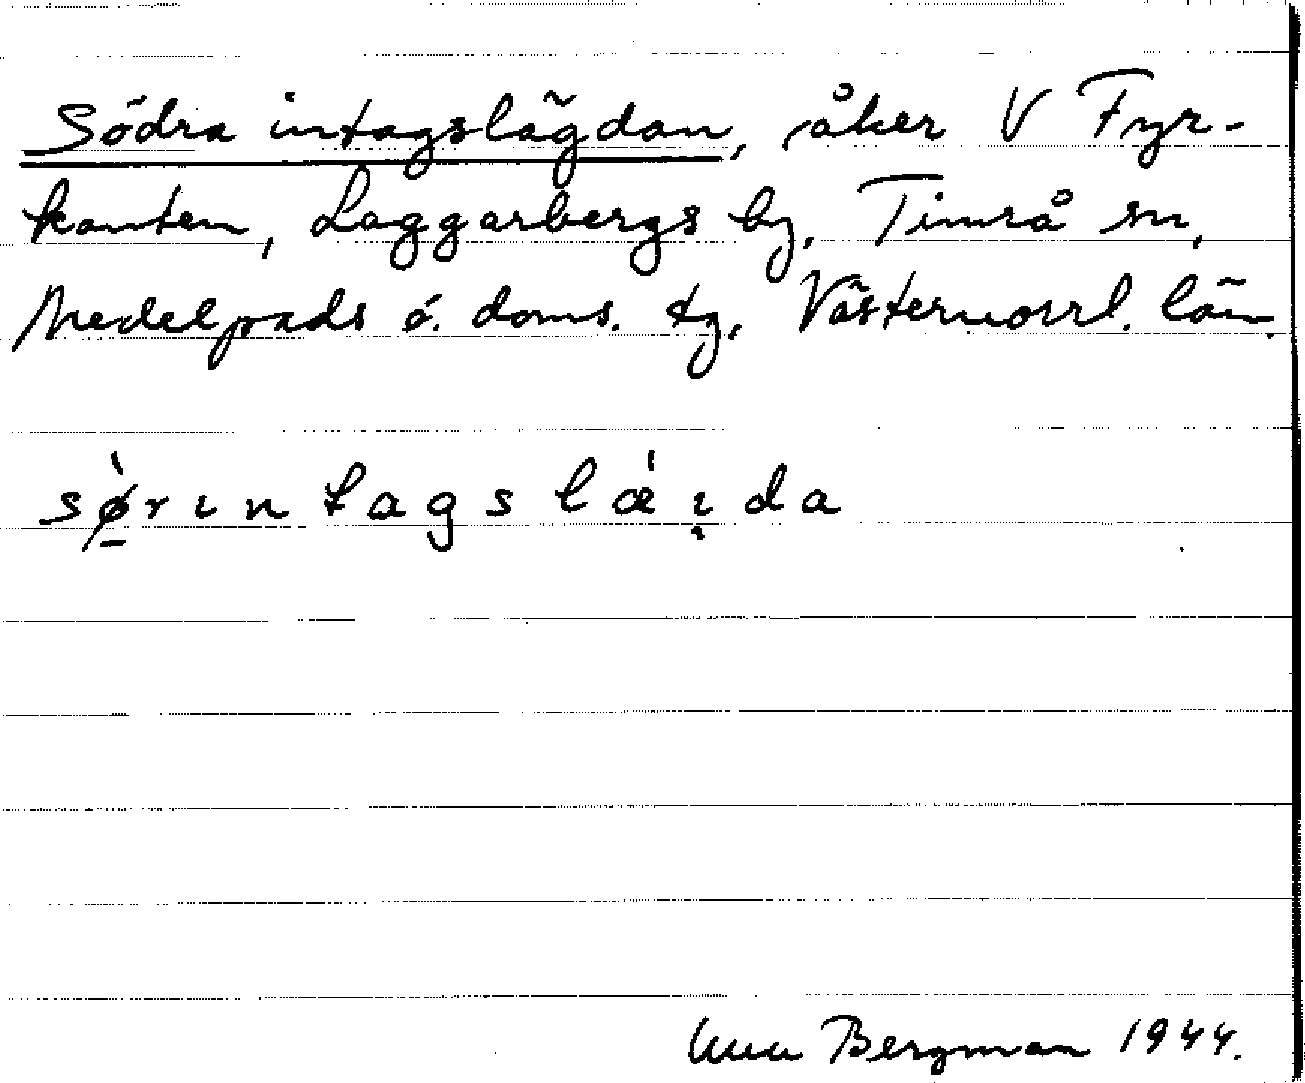 Södra intagslägdan, åker V Fyr-
kanten, Laggarbergs by, Timrå sn,
Medelpads ö. doms. tg, Västernorrl. län.
sø̱̀rıntagslǽı̣da
Bergman 1944.